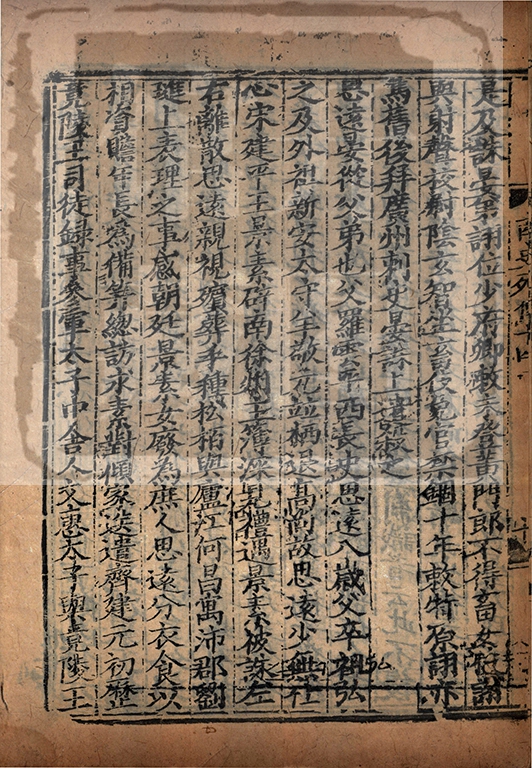 是及誅晏弟詡位少府卿敕未登黃門郎不得畜女妓詡
與射聲校尉陰玄智坐畜伎免官禁錮十年敕特原詡亦
篤舊後拜廣州刺史晏誅上遣殺之
思遠晏從父弟也父羅雲平西長史思遠八歲父卒祖弘
之及外祖新安太守羊敬元並栖退高尚故思遠少無仕
心宋建平王景素辟南徐州主簿深見禮遇景素被誅左
右離散思遠親視殯葬手種松柏與廬江何昌㝢沛郡劉
璡上表理之事感朝廷景素女廢為庶人思遠分衣食以
相資贍年長為備筓總訪求素對傾家送遣齊建元初歷
竟陵王司徒録事參軍太子中舍人文惠太子與竟陵王